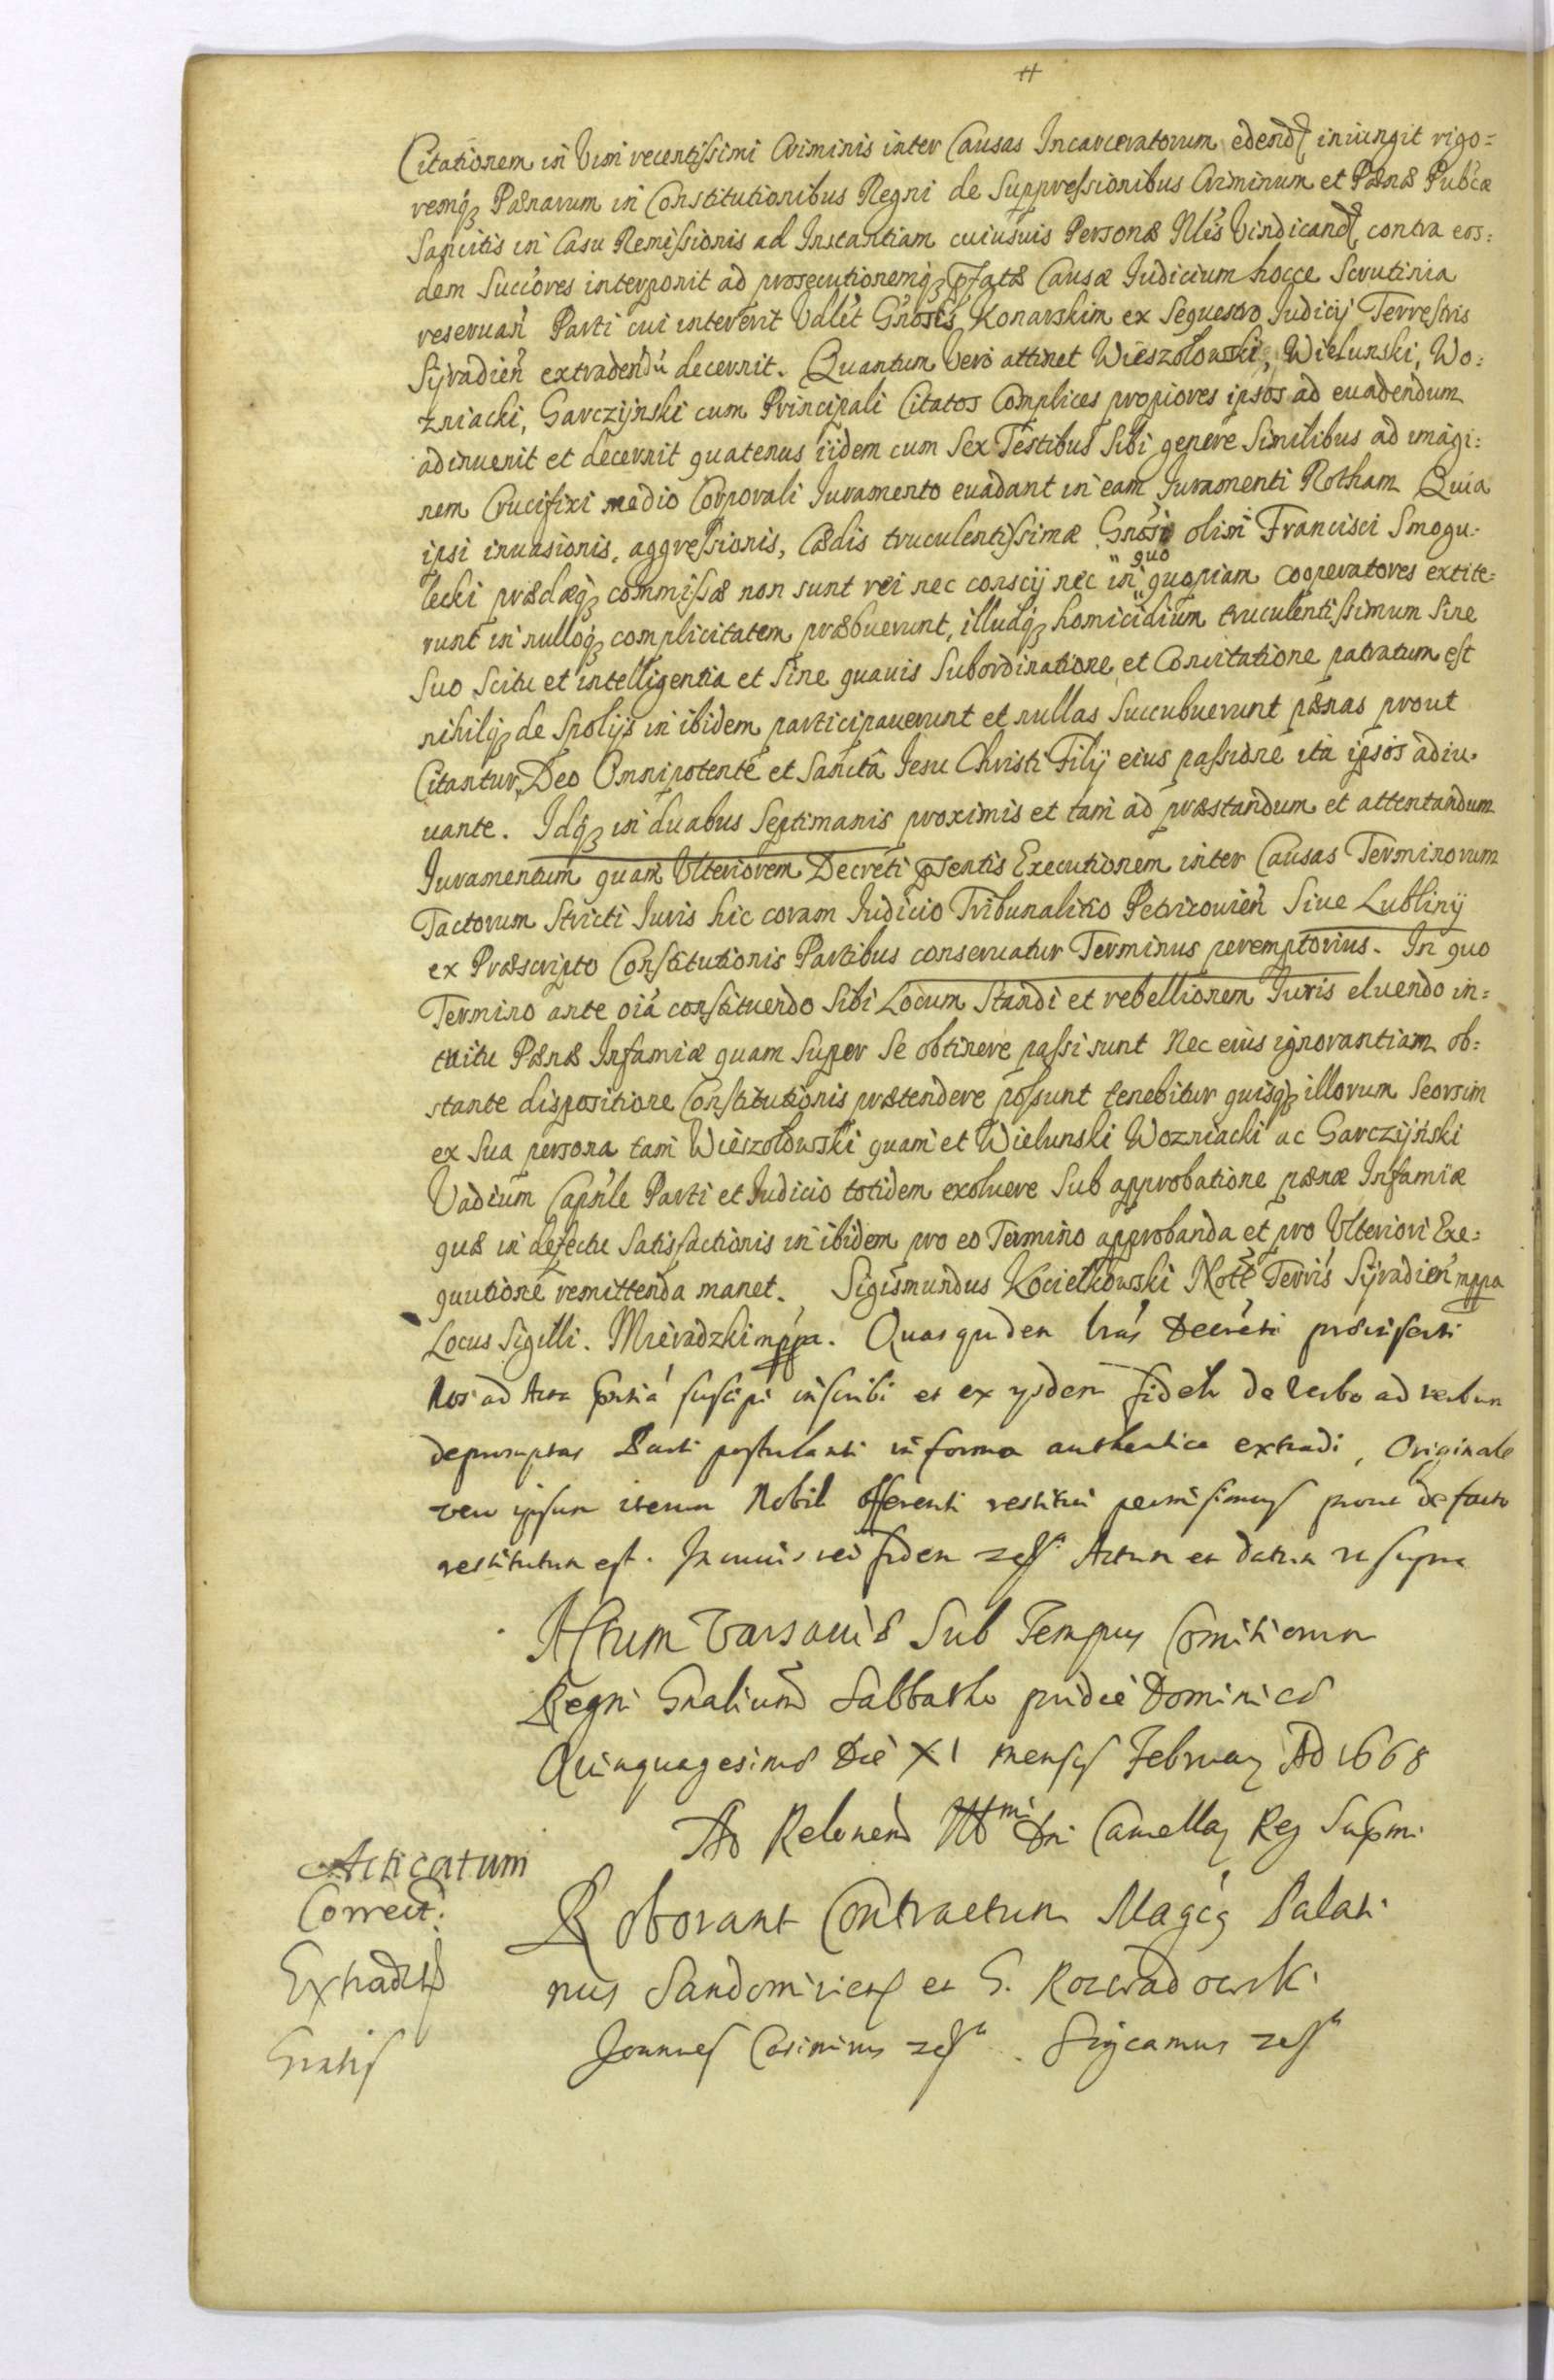 #
Citationem in Vim recentissimi Criminis inter Causas Incarceratorum edend iniungit rigo=
remq₃ Pænarum in Constitutionibus Regni de Suppressionibus Criminum et Pænæ Pubcæ
Sancitis in Casu Remissionis ad Instantiam cuiusuis Personæ Nlis Vindicand contra eos=
dem Succores interponit ad prosecutionemq₃ pfatæ Causæ Iudicium hocce Scrutinia
reseruan Parti cui intererit Valet Gnosis Konarskim ex Sequestro Iudicij Terrestris
Syradien extradendu decernit. Quantum Vero attinet Wieszołowski, Wielunski, Wo=
zniacki, Garczyński cum Principali Citatos Complices propiores ipsos ad euadendum
adinuenit et decernit quatenus iidem cum Sex Testibus Sibi genere Similibus ad imagi=
nem Crucifixi medio Corporali Iuramento euadant in eam Iuramenti Rotham Quia
ipsi inuasionis, aggressionis, Cædis truculentissimæ Gnosi olim Francisci Smogu=
lecki prædæq₃ commissæ non sunt rei nec conscij nec in quo quopiam cooperatores extite=
runt in nulloq₃ complicitatem præbuerunt, illudq₃ homicidium truculentissimum Sine
Suo Scitu et intelligentia et Sine quauis Subordinatione et Concitatione patratum est
nihilq₃ de Spolijs in ibidem participauerunt et nullas Succubuerunt pænas prout
Citantur, Deo Omnipotente et Sancta Iesu Christi Filij eius passione ita ipsos adiu=
uante. Idq₃ in duabus Septimanis proximis et tam ad præstandum et attentandum
Iuramentum quam Ulteriorem Decreti psentis Executionem inter Causas Terminorum
Tactorum Stricti Iuris hic coram Iudicio Tribunalitio Petricouien Siue Lublinij
ex Præscripto Constitutionis Partibus conseruatur Terminus peremptorius. In quo
Termino ante oia constituendo Sibi Locum Standi et rebellionem Iuris eluendo in=
tuitu Pænæ Infamiæ quam Super Se obtinere passi sunt Nec eius ignorantiam ob=
stante dispositione Constitutionis prætendere possunt tenebitur quisq₃ illorum Seorsim
ex Sua persona tam Wieszołowski quam et Wielunski Wozniacki ac Garczyński
Vadium Capnle Parti et Iudicio totidem exoluere Sub approbatione pænæ Infamiæ
quæ in defectu Satisfactionis in ibidem pro eo Termino approbanda et pro Ulteriori Exe=
qutione remittenda manet. Sigismundus Kociełkowski Notr Terris Syradien mppa
Locus Sigilli. Mieradzki mppa. Quas quidem lras Decreti præinserti
Nos ad Acta pntia suscipi inscribi et ex ijsdem fideli de Verbo ad verbum
depromptas Parti postulanti in forma authentica extradi, Originale
vero ipsum iterum Nobili offerenti restitui permisimus prout de facto
restitutum est. In cuius rei fidem zess Actum et datum ut supra
Actum Varsauiæ Sub Tempus Comitiorum
Regni Gnalium Sabbatho pridie Dominicæ
Quinquagesimæ Die XI mensis February AD 1668
Ad Relonem Illmi Dni Cancellary Reg Supmi
Roborant Contractum Magcg Palati
nus Sandomiriens et G. Rozwadowski
Joannes Casimirus zess. Significamus zess
Acticatum
Correct:
Extradit
Gratis